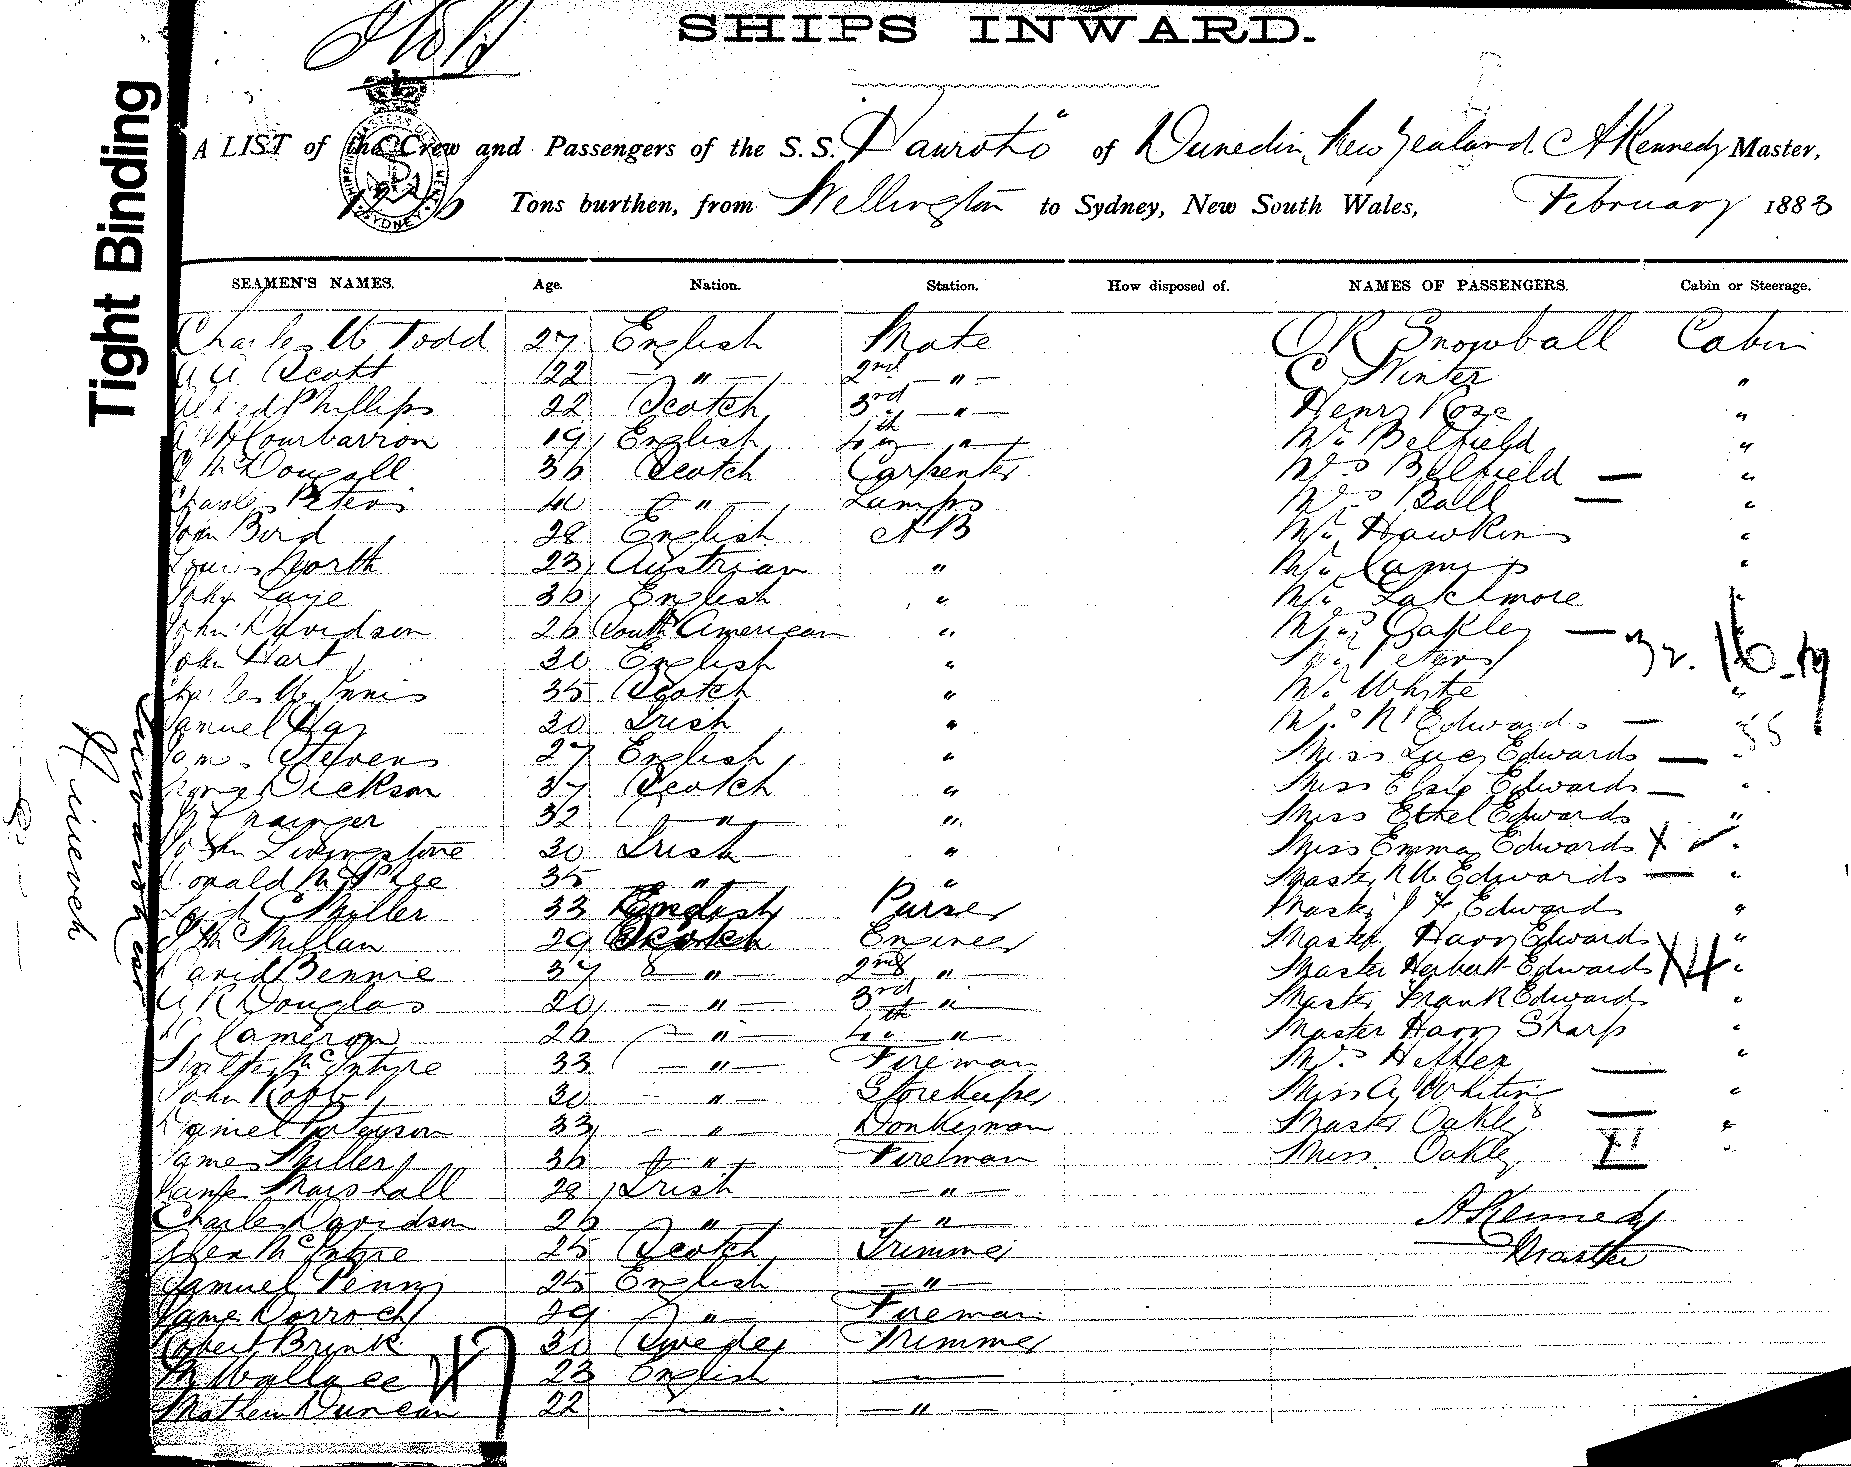 SHIPS INWARD.
Tight Binding
A LIST of the Crew and Passengers of the S.S. "Hauroto" of Dunedin, New Zealand. A Kennedy Master,
Tons burthen, from Wellington to Sydney, New South Wales, February 1883
SEAMEN'S NAMES. Age. Nation. Station. How disposed of. NAMES OF PASSENGERS. Cabin or Steerage.
Charles W Todd 27 English Mate Snowball Cabin
Scott 22 — " — 2nd — " — C Winter "
Alfred Phillips 22 Scotch 3rd — " — Henry Rose "
19 English 4th — " — Mr Belfield "
McDougall 36 Scotch Carpenter Mrs Belfield — "
Charles Peters — " — Lamps Mrs Ball — "
John Bird 28 English AB Mr Hawkins "
Louis North 23 Austrian " Mr "
John 36 English " Mr "
John Davidson 26 South American " Mrs Oakley —
John Hart 30 English "
Charles 35 Scotch " Mr White "
Samuel 30 Irish " Mrs Edwards — "
James Stevens 27 English " Miss Lucy Edwards — "
George Dickson 37 Scotch " Miss Elsie Edwards — "
32 — " — " Miss Ethel Edwards "
John Livingstone 30 Irish " Miss Emma Edwards "
Donald McPhee 35 " " Master Edwards — "
Miller 33 English Purser Master Edwards "
McMillan 29 Scotch Engineer Master Harry Edwards "
David Bennie 37 — " — 2nd — " — Master Herbert Edwards "
Douglas 20 — " — 3rd — " — Master Frank Edwards "
Cameron 26 — " — 4th " Master Harry Sharp "
Walter McIntyre 33 — " — Fireman Mrs "
John Robb 30 — " — Storekeeper Miss Whiting "
Daniel Paterson 33 — " — Donkeyman Master Oakley "
James Miller 36 — " — Fireman Miss Oakley "
James Marshall 28 Irish — " —
Charles Davidson 26 " — " — A Kennedy
Alex McIntyre 25 Scotch Trimmer Master
Samuel Penny 25 English — " —
James Dorroch 29 " Fireman
Robert Brink 30 Swede Trimmer
Wallace 23 English —
Mathew Duncan 22 — — " —